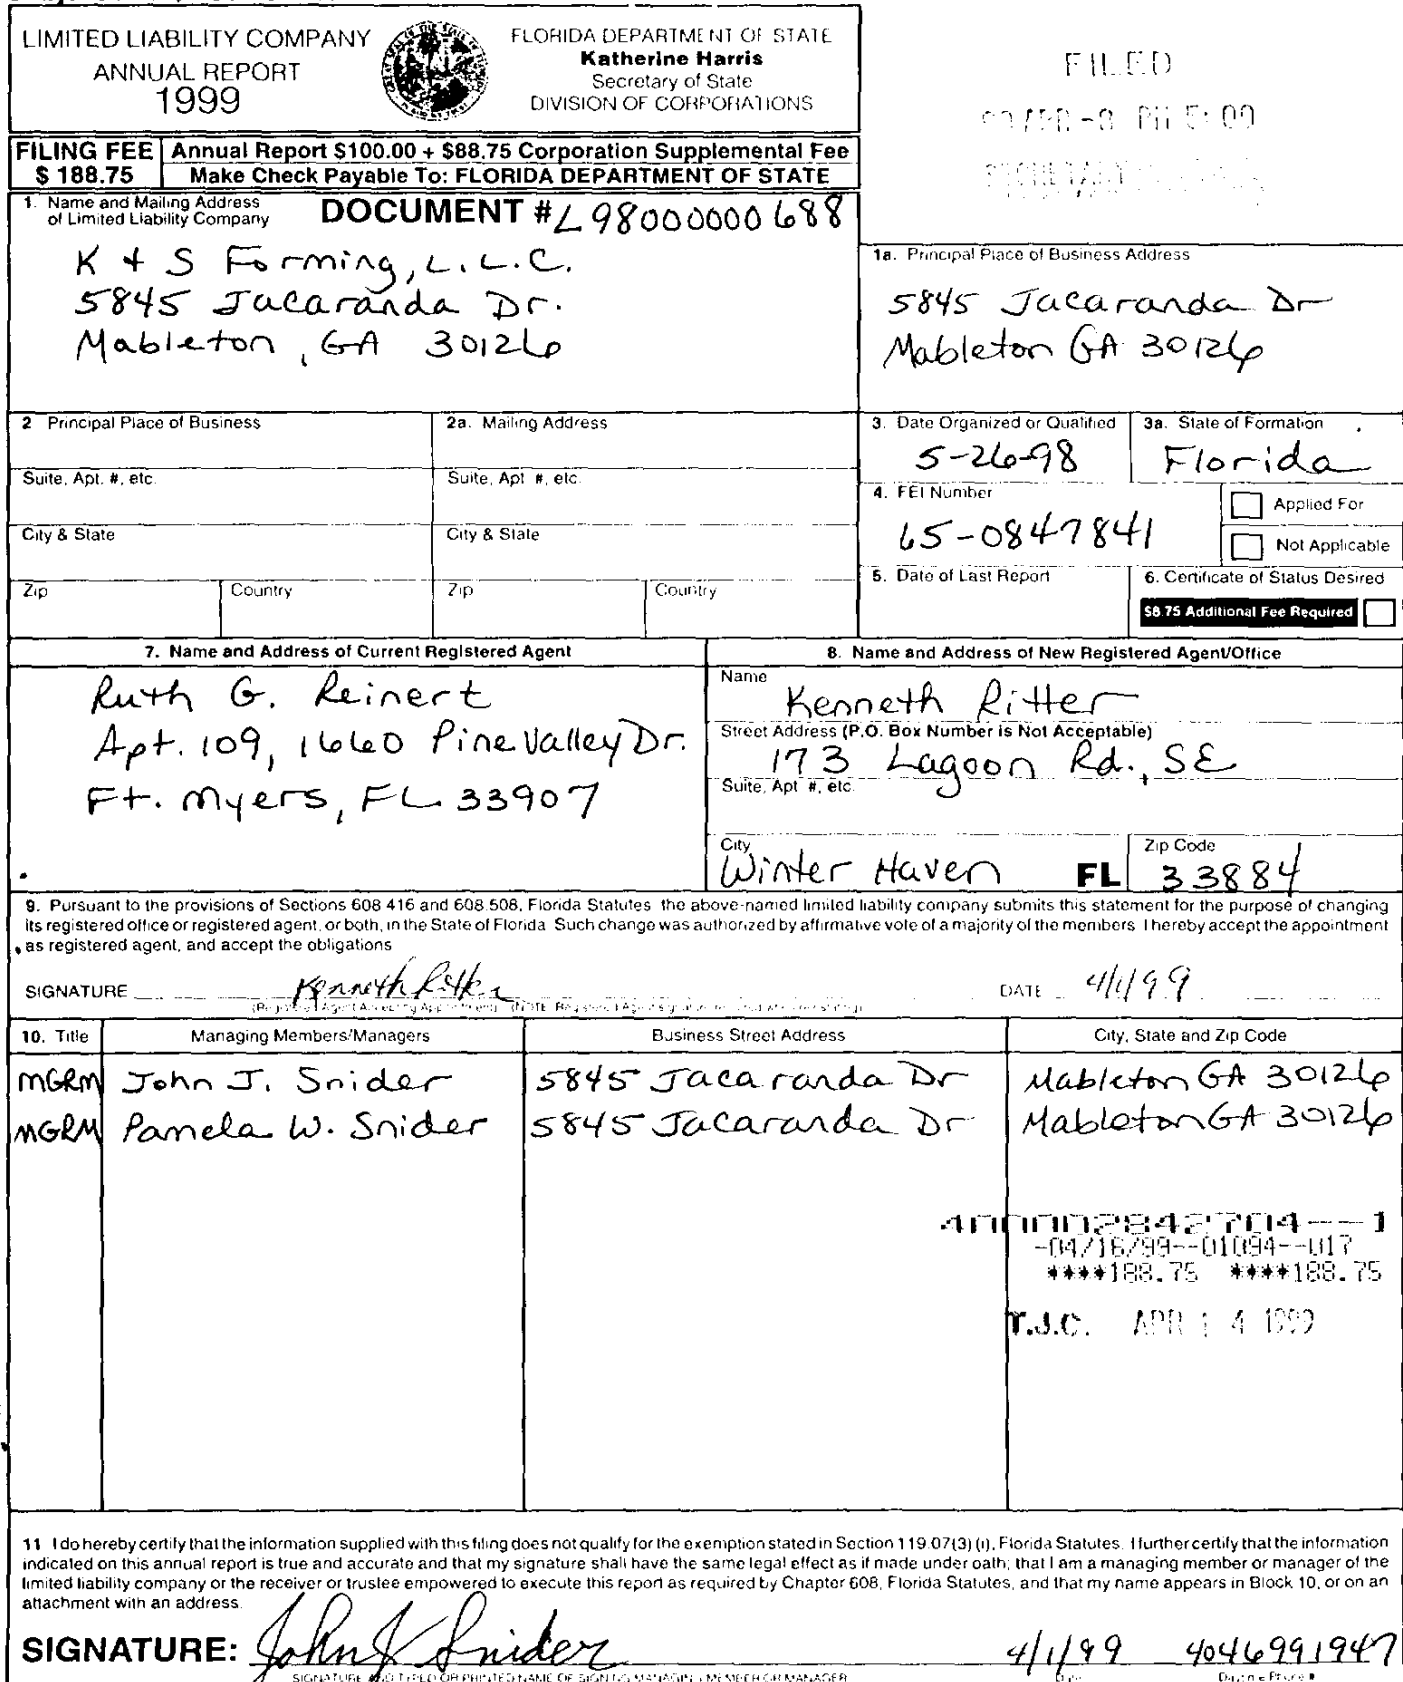 LIMITED LIABILITY COMPANY
ANNUAL REPORT
1999
FLORIDA DEPARTMENT OF STATE
Katherine Harris
Secretary of State
DIVISION OF CORPORATIONS
FILED
PM 5:00
FILING FEE
$ 188.75
Annual Report $100.00 + $88.75 Corporation Supplemental Fee
Make Check Payable To: FLORIDA DEPARTMENT OF STATE
1. Name and Mailing Address
of Limited Liability Company
DOCUMENT # L98000000688
K + S Forming, L.L.C.
5845 Jacaranda Dr.
Mableton, GA 30126
1a. Principal Place of Business Address
5845 Jacaranda Dr
Mableton GA 30126
2 Principal Place of Business
2a. Mailing Address
3. Date Organized or Qualified
5-26-98
3a. State of Formation
Florida
Suite, Apt. #, etc.
Suite, Apt #, etc.
4. FEI Number
65-0847841
Applied For
Not Applicable
City & State
City & State
5. Date of Last Report
6. Certificate of Status Desired
$8.75 Additional Fee Required
Zip
Country
Zip
Country
7. Name and Address of Current Registered Agent
Ruth G. Reinert
Apt. 109, 1660 Pine Valley Dr.
Ft. Myers, FL 33907
8. Name and Address of New Registered Agent/Office
Name
Kenneth Ritter
Street Address (P.O. Box Number is Not Acceptable)
173 Lagoon Rd., SE
Suite, Apt #, etc.
City
Winter Haven FL
Zip Code
33884
9. Pursuant to the provisions of Sections 608.416 and 608.508, Florida Statutes, the above-named limited liability company submits this statement for the purpose of changing
its registered office or registered agent, or both, in the State of Florida. Such change was authorized by affirmative vote of a majority of the members. I hereby accept the appointment
as registered agent, and accept the obligations
SIGNATURE Kenneth Ritter
DATE 4/1/99
(Registered Agent Accepting Appointment)
10. Title
Managing Members/Managers
Business Street Address
City, State and Zip Code
MGRM John J. Snider 5845 Jacaranda Dr Mableton GA 30126
MGRM Pamela W. Snider 5845 Jacaranda Dr Mableton GA 30126
400002842704--1
-04/16/99--01094--017
****188.75 ****188.75
T.J.C. APR 14 1999
11 I do hereby certify that the information supplied with this filing does not qualify for the exemption stated in Section 119.07(3) (i), Florida Statutes. I further certify that the information
indicated on this annual report is true and accurate and that my signature shall have the same legal effect as if made under oath; that I am a managing member or manager of the
limited liability company or the receiver or trustee empowered to execute this report as required by Chapter 608, Florida Statutes, and that my name appears in Block 10, or on an
attachment with an address.
SIGNATURE: John J Snider
4/1/99 4046991947
SIGNATURE AND TYPED OR PRINTED NAME OF SIGNING MANAGING MEMBER OR MANAGER
Date
Daytime Phone #